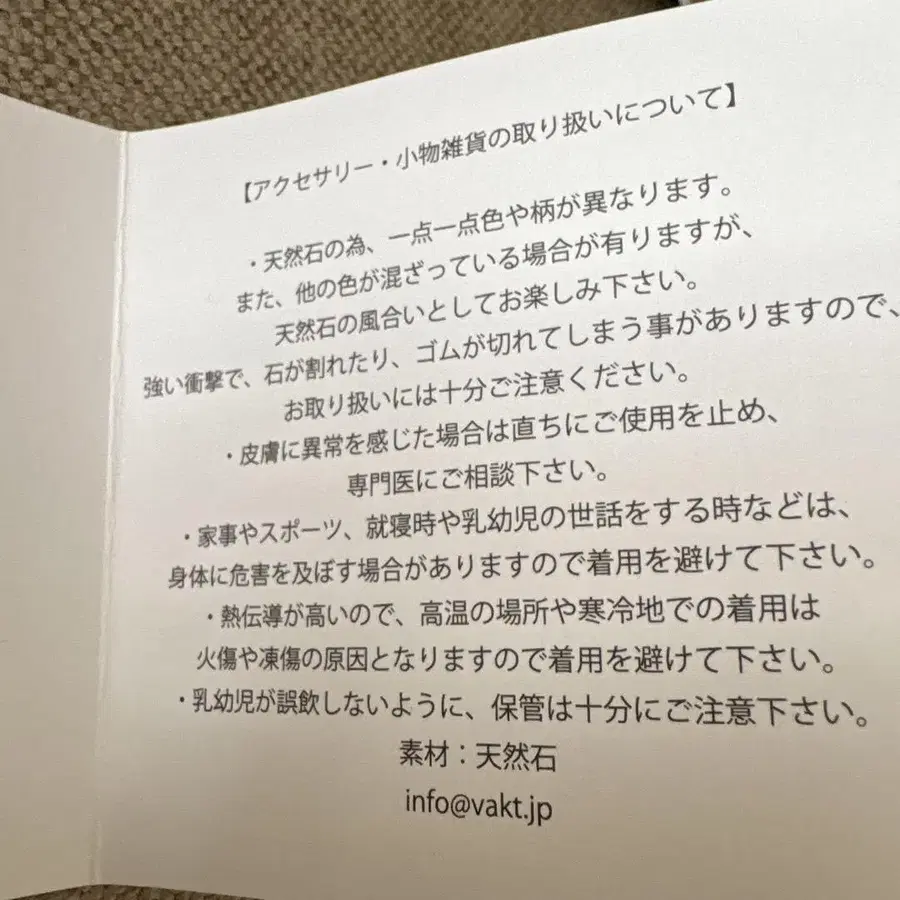 【アクセサリー・小物雑貨の取り扱いについて】
・天然石の為、一点一点色や柄が異なります。
また、他の色が混ざっている場合が有りますが、
天然石の風合いとしてお楽しみ下さい。
強い衝撃で、石が割れたり、ゴムが切れてしまう事がありますので、
お取り扱いには十分ご注意ください。
・皮膚に異常を感じた場合は直ちにご使用を止め、
専門医にご相談下さい。
・家事やスポーツ、就寝時や乳幼児の世話をする時などは、
身体に危害を及ぼす場合がありますので着用を避けて下さい。
・熱伝導が高いので、高温の場所や寒冷地での着用は
火傷や凍傷の原因となりますので着用を避けて下さい。
・乳幼児が誤飲しないように、保管は十分にご注意下さい。
素材：天然石
info@vakt.jp